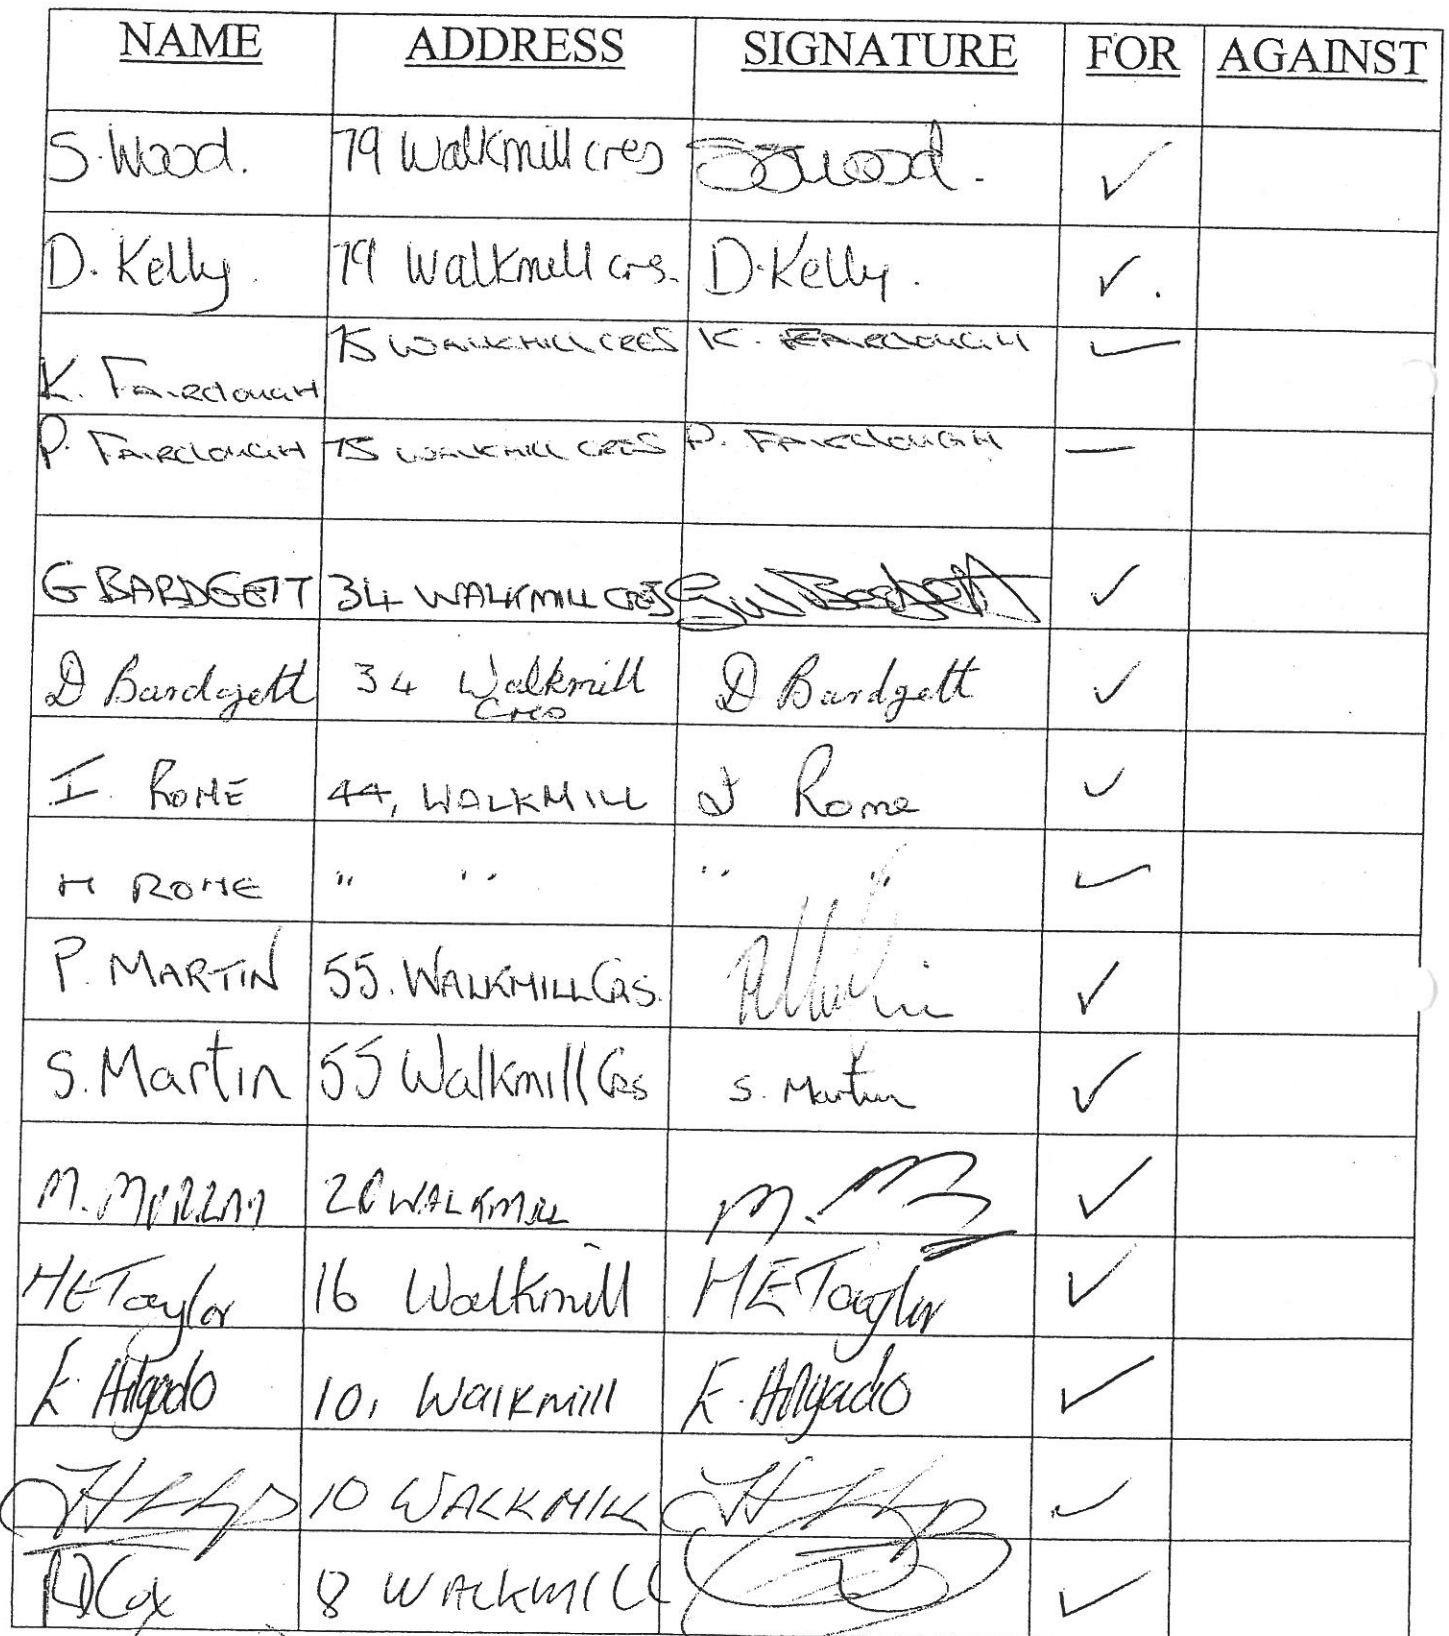 NAME ADDRESS SIGNATURE FOR AGAINST
S. Wood. 79 Walkmill cres SSWood. ✓
D. Kelly. 79 Walkmill Cres. D. Kelly. ✓.
K. FAIRCLOUGH 75 WALKMILL CRES K. FAIRCLOUGH ✓
P. FAIRCLOUGH 75 WALKMILL CRES P. FAIRCLOUGH —
G BARDGETT 34 WALKMILL CRES GW Bardgett ✓
D Bardgett 34 Walkmill D Bardgett ✓
Cres
I. ROME 44, WALKMILL I Rome ✓
M ROME " " " " ✓
P. MARTIN 55. WALKMILL Cres. ✓
S. Martin 55 Walkmill Cres S. Martin ✓
M. 20 WALKMILL M. ✓
HE Taylor 16 Walkmill HE Taylor ✓
E. 10, Walkmill E. ✓
10 WALKMILL ✓
RD Cox 8 WALKMILL ✓